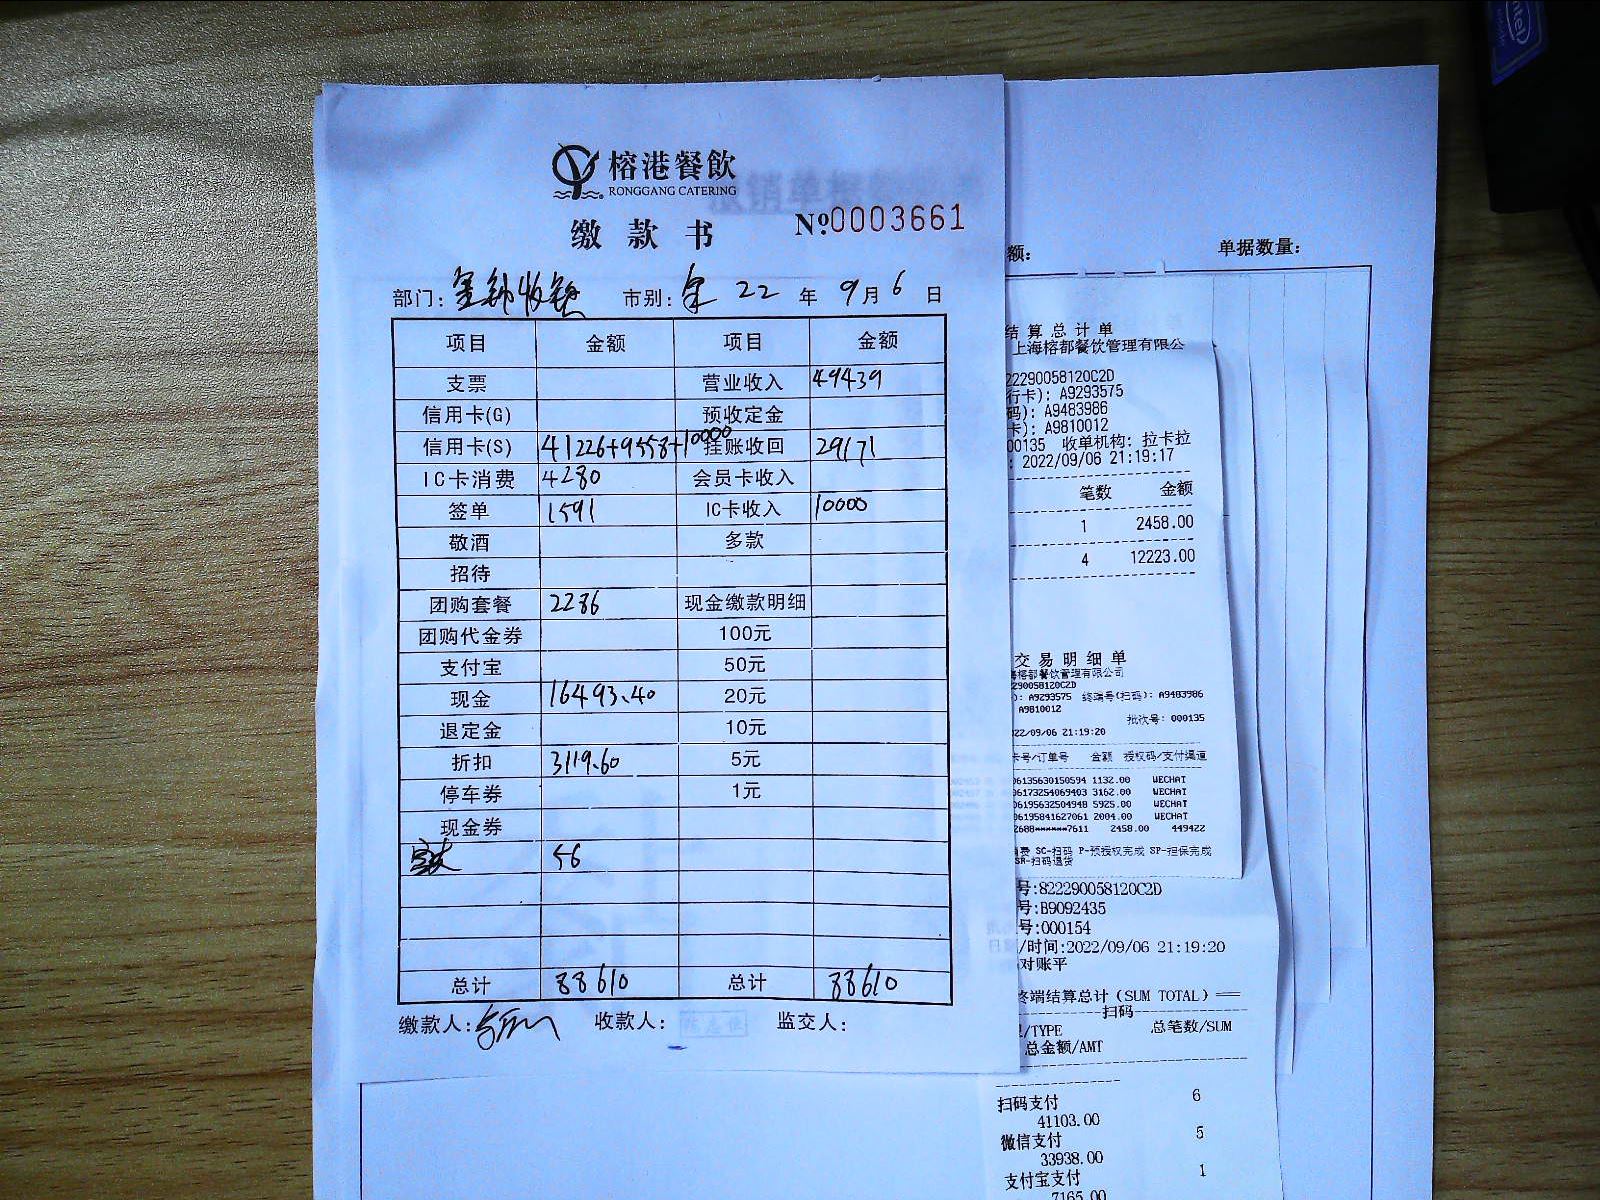 榕港餐飲
RONGGANG CATERING
缴款书 №0003661
部门: 市别: 22 年 9 月 6 日
项目 金额 项目 金额
支票 营业收入 49439
信用卡(G) 预收定金
信用卡(S) 41226+9558+10000 挂账收回 29171
IC卡消费 4280 会员卡收入
签单 1591 IC卡收入 10000
敬酒 多款
招待
团购套餐 2286 现金缴款明细
团购代金券 100元
支付宝 50元
现金 16493.40 20元
退定金 10元
折扣 3119.60 5元
停车券 1元
现金券
56
总计 88610 总计 88610
缴款人: 收款人: 监交人:
额: 单据数量:
结算总计单
上海榕都餐饮管理有限公
22290058120C2D
行卡): A9293575
码): A9483986
卡): A9810012
00135 收单机构: 拉卡拉
: 2022/09/06 21:19:17
笔数 金额
1 2458.00
4 12223.00
交易明细单
海榕都餐饮管理有限公司
290058120C2D
): A9293575 终端号(扫码): A9483986
A9810012
批次号: 000135
022/09/06 21:19:20
卡号/订单号 金额 授权码/支付渠道
06135630150594 1132.00 WECHAT
06173254069403 3162.00 WECHAT
06195632504948 5925.00 WECHAT
06195841627061 2004.00 WECHAT
2688******7611 2458.00 449422
消费 SC-扫码 P-预授权完成 SP-担保完成
SR-扫码退货
号:822290058120C2D
号:B9092435
号:000154
/时间:2022/09/06 21:19:20
对账平
终端结算总计 (SUM TOTAL)===
扫码
/TYPE 总笔数/SUM
总金额/AMT
扫码支付 6
41103.00
微信支付 5
33938.00
支付宝支付 1
7165.00